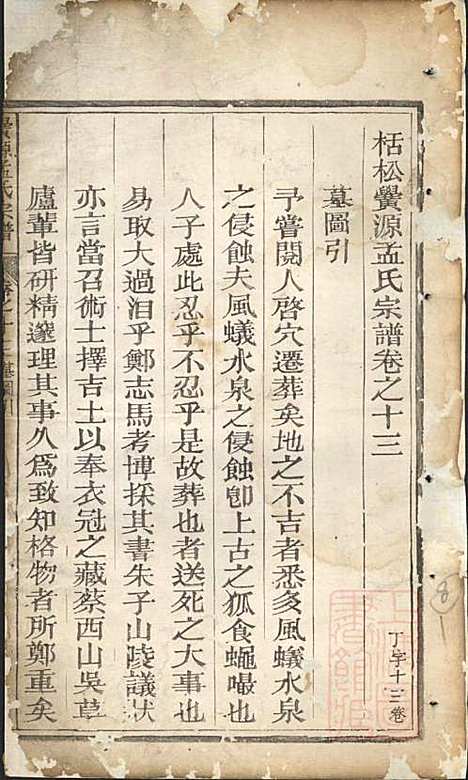 栝松黌源孟氏宗譜卷之十三
墓圖引
予嘗閱人啓穴遷葬矣地之不吉者悉多風蟻水泉
之侵蝕夫風蟻水泉之侵蝕卽上古之狐食蠅嘬也
人子處此忍乎不忍乎是故葬也者送死之大事也
易取大過洎乎鄭志馬考博採其書朱子山陵議狀
亦言當召術士擇吉土以奉衣冠之藏蔡西山吳草
廬輩皆硏精邃理其事久爲致知格物者所鄭重矣
黌源孟氏宗譜 卷之十三墓圖引
丁字十三卷